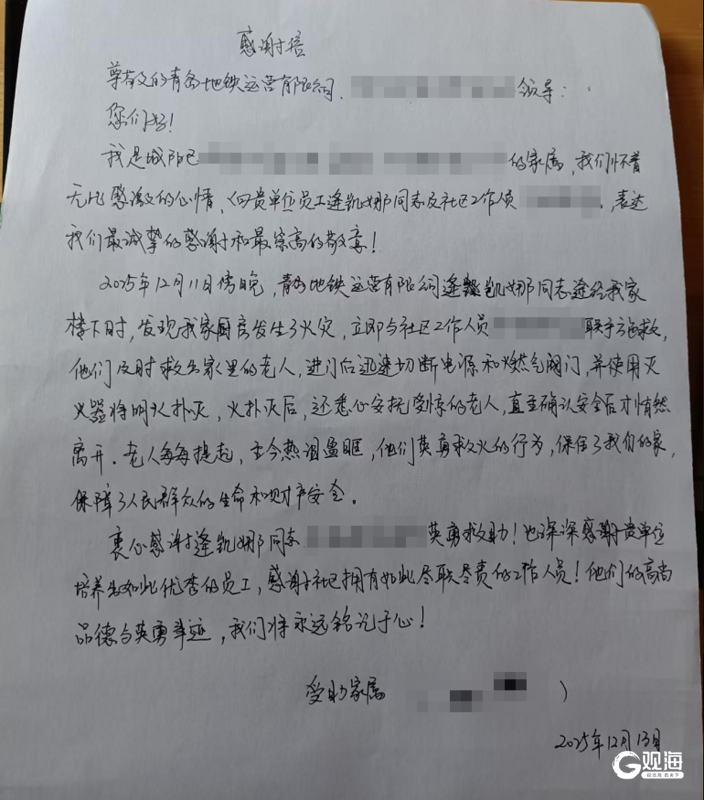 感谢信
尊敬的青岛地铁运营有限公司、 领导：
您们好！
我是城阳区 的家属，我们怀着
无比感激的心情，向贵单位员工逄凯娜同志及社区工作人员 ，表达
我们最诚挚的感谢和最崇高的敬意！
2025年12月11日傍晚，青岛地铁运营有限公司逄凯娜同志途经我家
楼下时，发现我家厨房发生了火灾，立即与社区工作人员 联手施救，
他们及时救出家里的老人，进门后迅速切断电源和燃气阀门，并使用灭
火器将明火扑灭，火扑灭后，还悉心安抚受惊的老人，直至确认安全后才悄然
离开。老人每每提起，至今热泪盈眶，他们英勇救火的行为，保住了我们的家，
保障了人民群众的生命和财产安全。
衷心感谢逄凯娜同志 英勇救助！也深深感谢贵单位
培养出如此优秀的员工，感谢社区拥有如此尽职尽责的工作人员！他们的高尚
品德与英勇事迹，我们将永远铭记于心！
受助家属 )
2025年12月13日
观海
观沧海 看天下